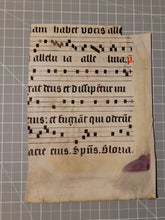 am habet vocis alle
alleluia alle luia. p.
gat deus et dissipentur ini
eius: et fugiāt qui oderūt
facie eius. Sp̄ūs. Gloria.